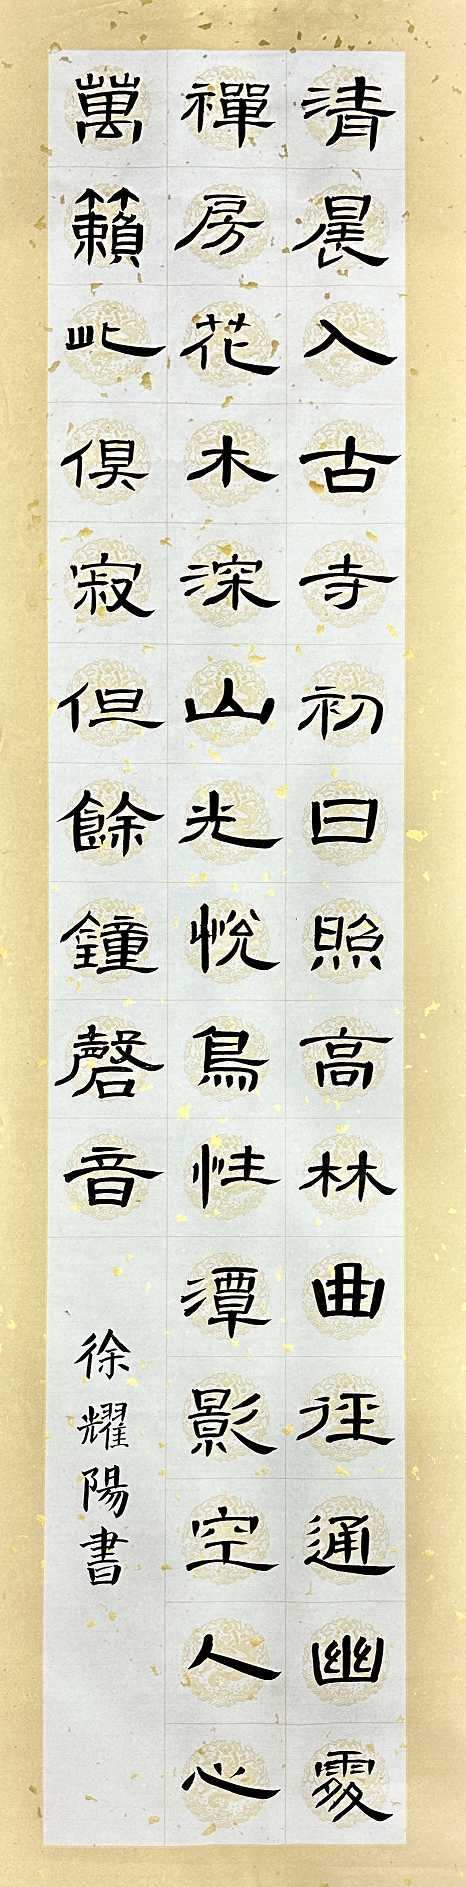 清晨入古寺初日照高林曲徑通幽處
禪房花木深山光悅鳥性潭影空人心
萬籟此俱寂但餘鐘磬音
徐耀陽書